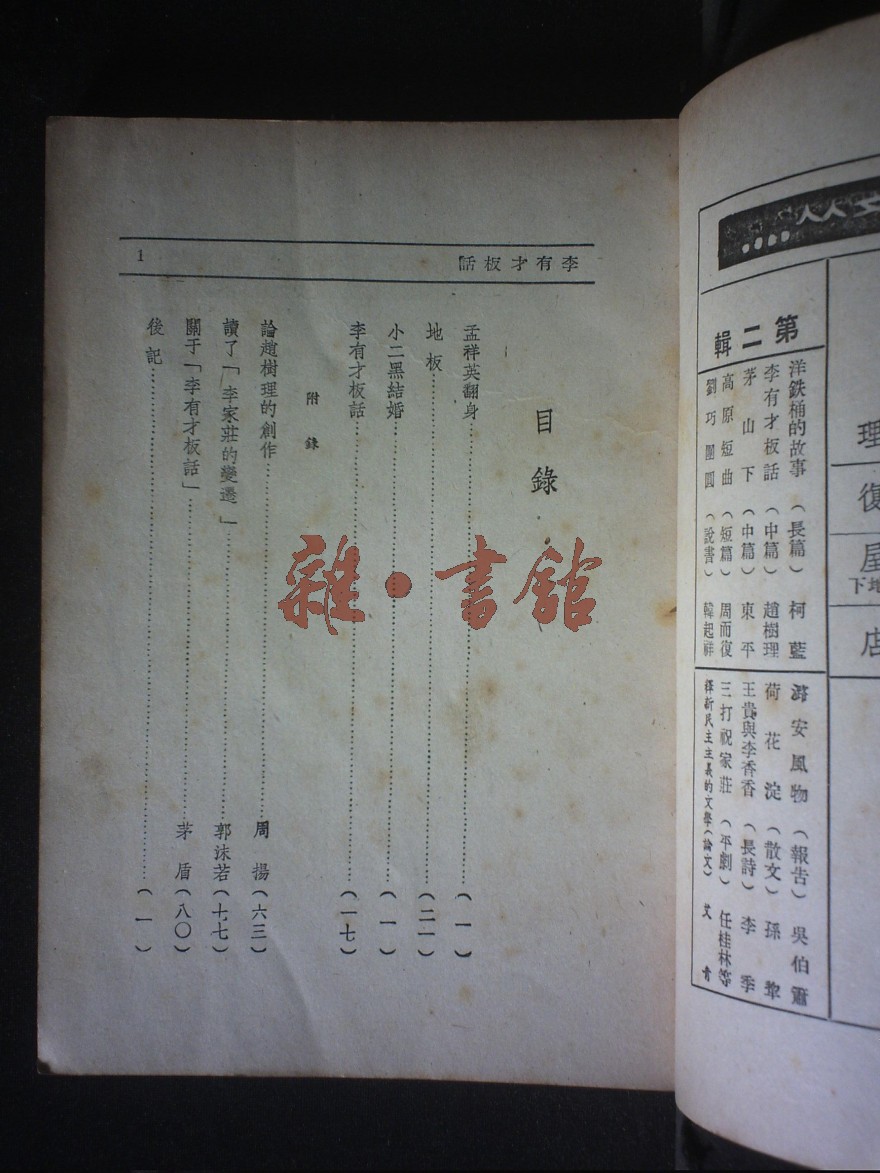 理
復
屋
地下
店
第二輯
洋鉄桶的故事（長篇）柯藍
李有才板話（中篇）趙樹理
茅山下（中篇）東平
高原短曲（短篇）周而復
劉巧團圓（說書）韓起祥
安風物（報告）吳伯簫
荷花淀（散文）孫犂
王貴與李香香（長詩）李季
三打祝家莊（平劇）任桂林等
釋新民主主義的文學（論文）艾青
李有才板話
1
目錄
孟祥英翻身……（一）
地板……（二一）
小二黑結婚……（一）
李有才板話……（一七）
附錄
論趙樹理的創作……周揚（六三）
讀了「李家莊的變遷」……郭沫若（七七）
關于「李有才板話」……茅盾（八〇）
後記……（一）
雜·書館